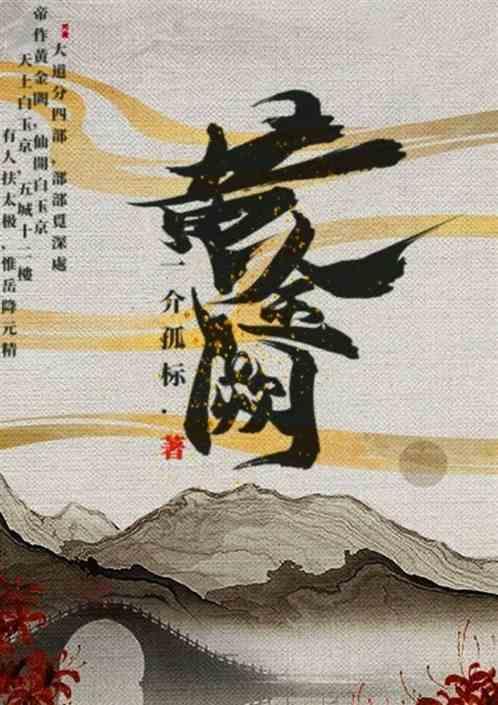 黄金闕
一介孤标·著
大道分四部，部部覓深處
帝作黄金闕，仙開白玉京
天上白玉京，五城十二樓
有人扶太极，惟岳降元精